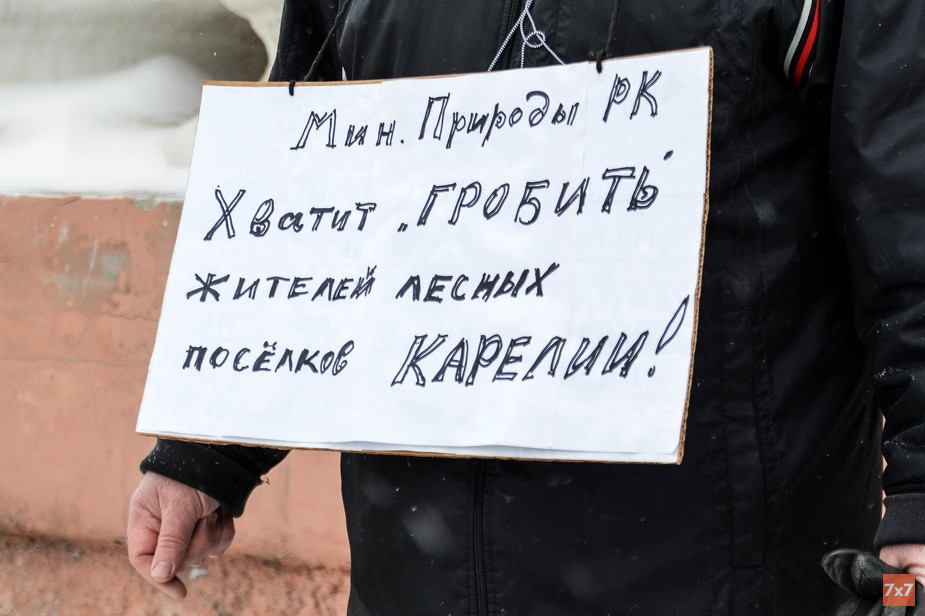 Мин. Природы РК
Хватит „ГРОБИТЬ"
ЖИТЕЛЕЙ ЛЕСНЫХ
ПОСЁЛКОВ КАРЕЛИИ!
7x7